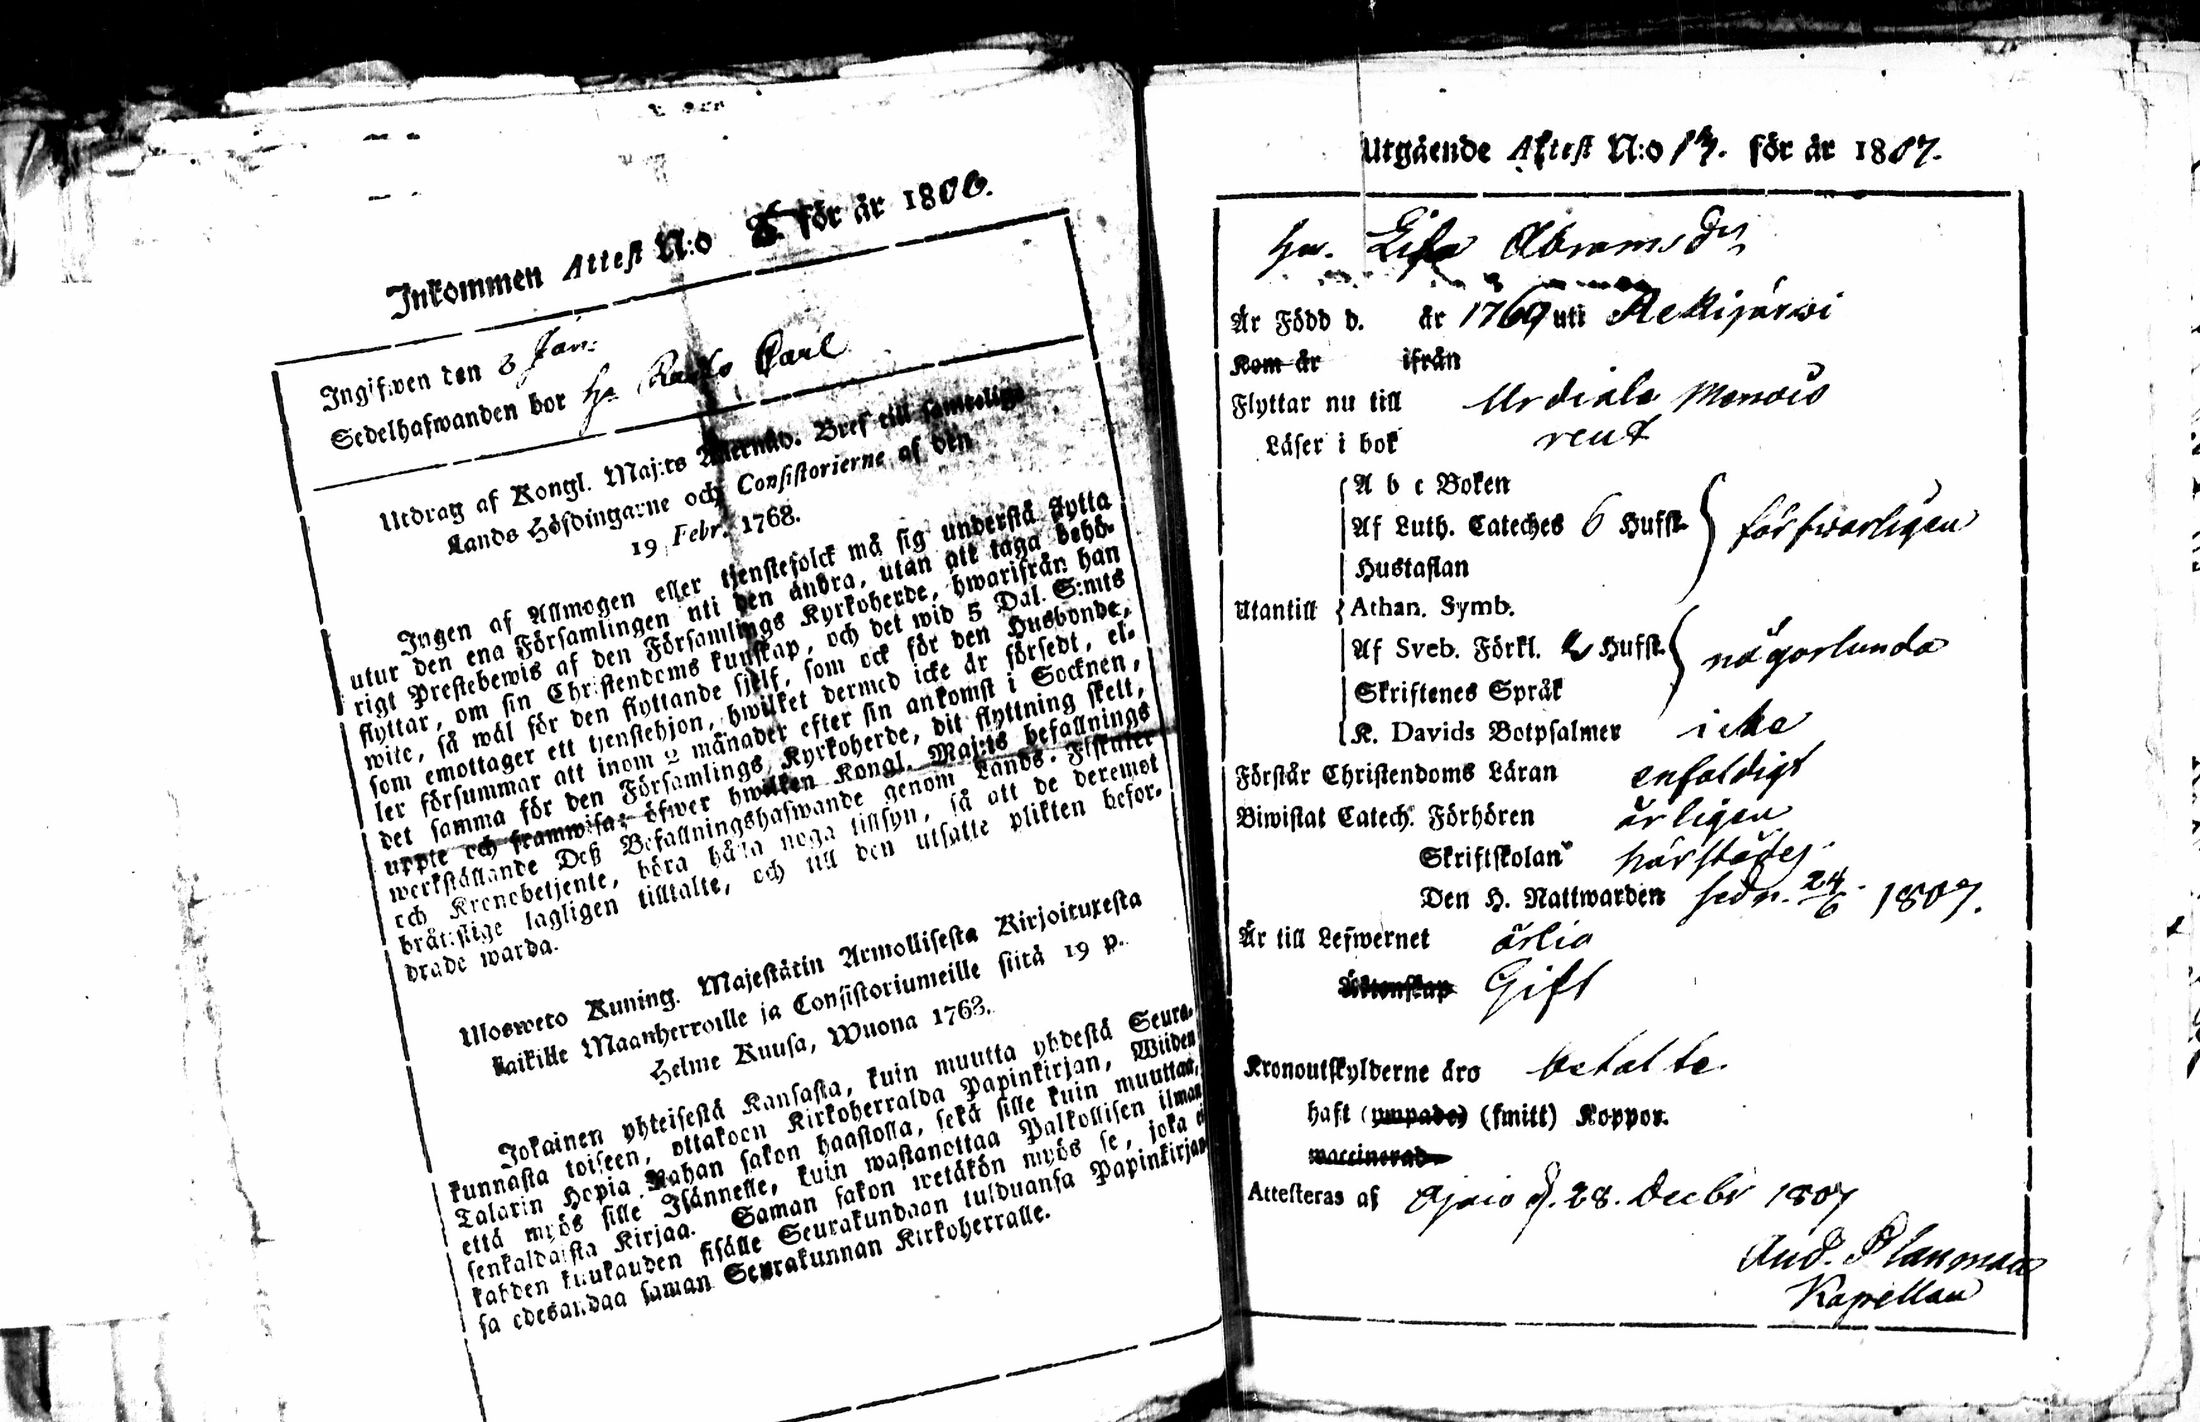 Inkommen Attest N:o 8. för år 1806.
Ingifwen den 8 Jan:
Sedelhafwanden bor Carl
Utdrag af Kongl. Maj:ts Bref till samtelige
Lands Höfdingarne och Consistorierne af den
19 Febr. 1768.
Ingen af Allmogen eller tjenstefolck må sig understå flytta
utur den ena Församlingen uti den andra, utan att taga behö-
rigt Prestebewis af den Församlings Kyrkoherde, hwarifrån han
flyttar, om sin Christendoms kunskap, och det wid 5 Dal. S:mts
wite, så wäl för den flyttande sjelf, som ock för den Husbonde,
som emottager ett tjenstehjon, hwilket dermed icke är försedt, el-
ler försummar att inom 2 månader efter sin ankomst i Socknen,
det samma för den Församlings Kyrkoherde, dit flyttning skett,
uppte och framwisa; öfwer hwilken Kongl. Maj:ts befallnings
werkställande Deß Befallningshafwande genom Lands-Fiskaler
och Kronobetjente, böra hålla noga tillsyn, så att de deremot
bråttslige lagligen tilltalte, och till den utsatte plikten befor-
drade warda.
Ulosweto Kuning. Majestätin Armollisesta Kirjoituxesta
kaikille Maanherroille ja Consistoriumeille siitä 19 p.
Helme Kuusa, Wuona 1768.
Jokainen yhteisestä Kansasta, kuin muutta yhdestä Seura-
kunnasta toiseen, ottakoon Kirkoherralda Papinkirjan, Wiiden
Talarin Hopia Rahan sakon haastolla, sekä sille kuin muuttaa,
että myös sille Isännelle, kuin wastanottaa Palkollisen ilman
senkaldaista Kirjaa. Saman sakon wetäkön myös se, joka ei
kahden kuukauden sisälle Seurakundaan tulduansa Papinkirjan-
sa edesandaa saman Seurakunnan Kirkoherralle.
Utgående Attest N:o 13. för år 1807.
hu. Lisa Abramsdr
Är Född d. år 1769 uti Akkijärwi
Kom år ifrån
Flyttar nu till Urdiala Menois
Läser i bok rent
A b c Boken
Af Luth. Cateches 6 Hufst. försvarligen
Hustaflan
Utantill Athan. Symb.
Af Sveb. Förkl. 2 Hufst. någorlunda
Skriftenes Språk
K. Davids Botpsalmer icke
Förstår Christendoms Läran enfaldigt
Biwistat Catech. Förhören årligen
Skriftskolan härstädes
Den H. Nattwarden sedn. 24/6 1807.
Är till Lefwernet ärlig
Äktenskap Gift
Kronoutskylderne äro betalte.
haft (ympade) (smitt) Koppor.
waccinerad
Attesteras af d. 28. Decbr 1807
And. Planman
Kapellan